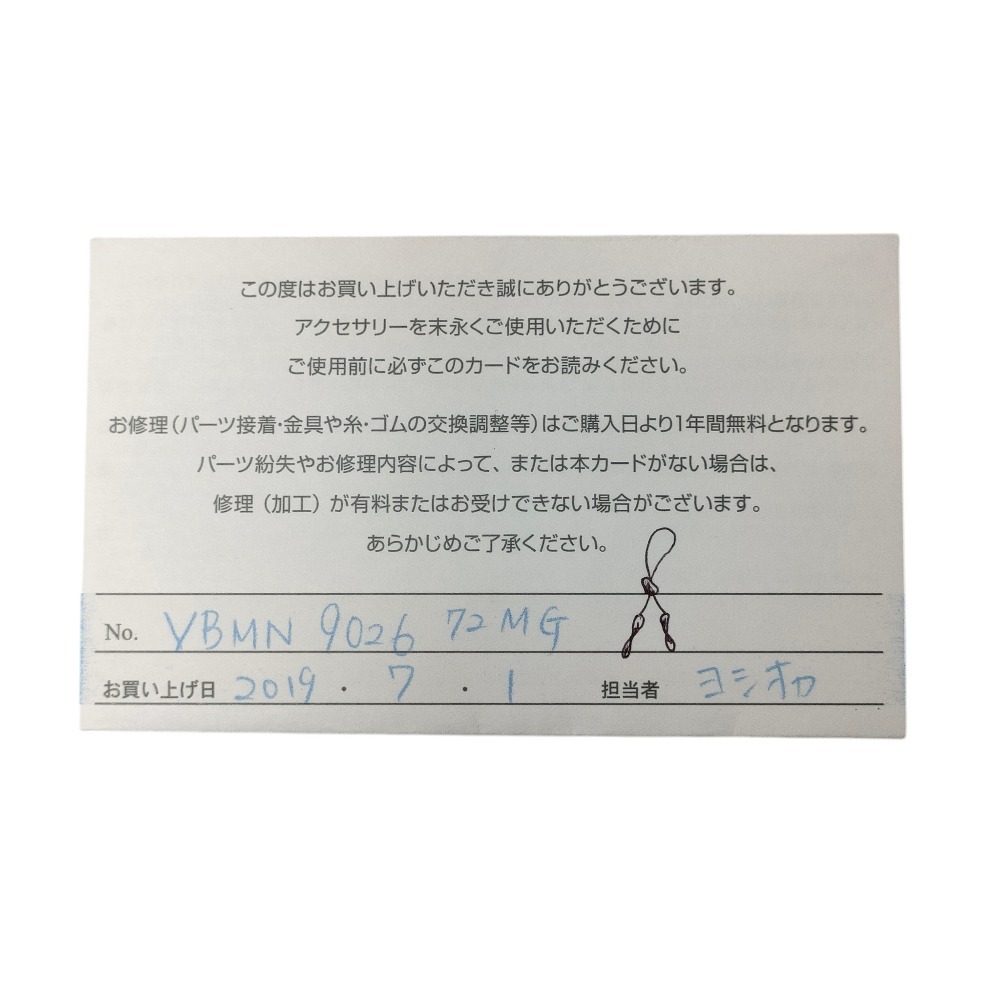 この度はお買い上げいただき誠にありがとうございます。
アクセサリーを末永くご使用いただくために
ご使用前に必ずこのカードをお読みください。
お修理(パーツ接着・金具や糸・ゴムの交換調整等)はご購入日より1年間無料となります。
パーツ紛失やお修理内容によって、または本カードがない場合は、
修理(加工)が有料またはお受けできない場合がございます。
あらかじめご了承ください。
No. YBMN 9026 72MG
お買い上げ日 2019 ・ 7 ・ 1 担当者 ヨシオカ